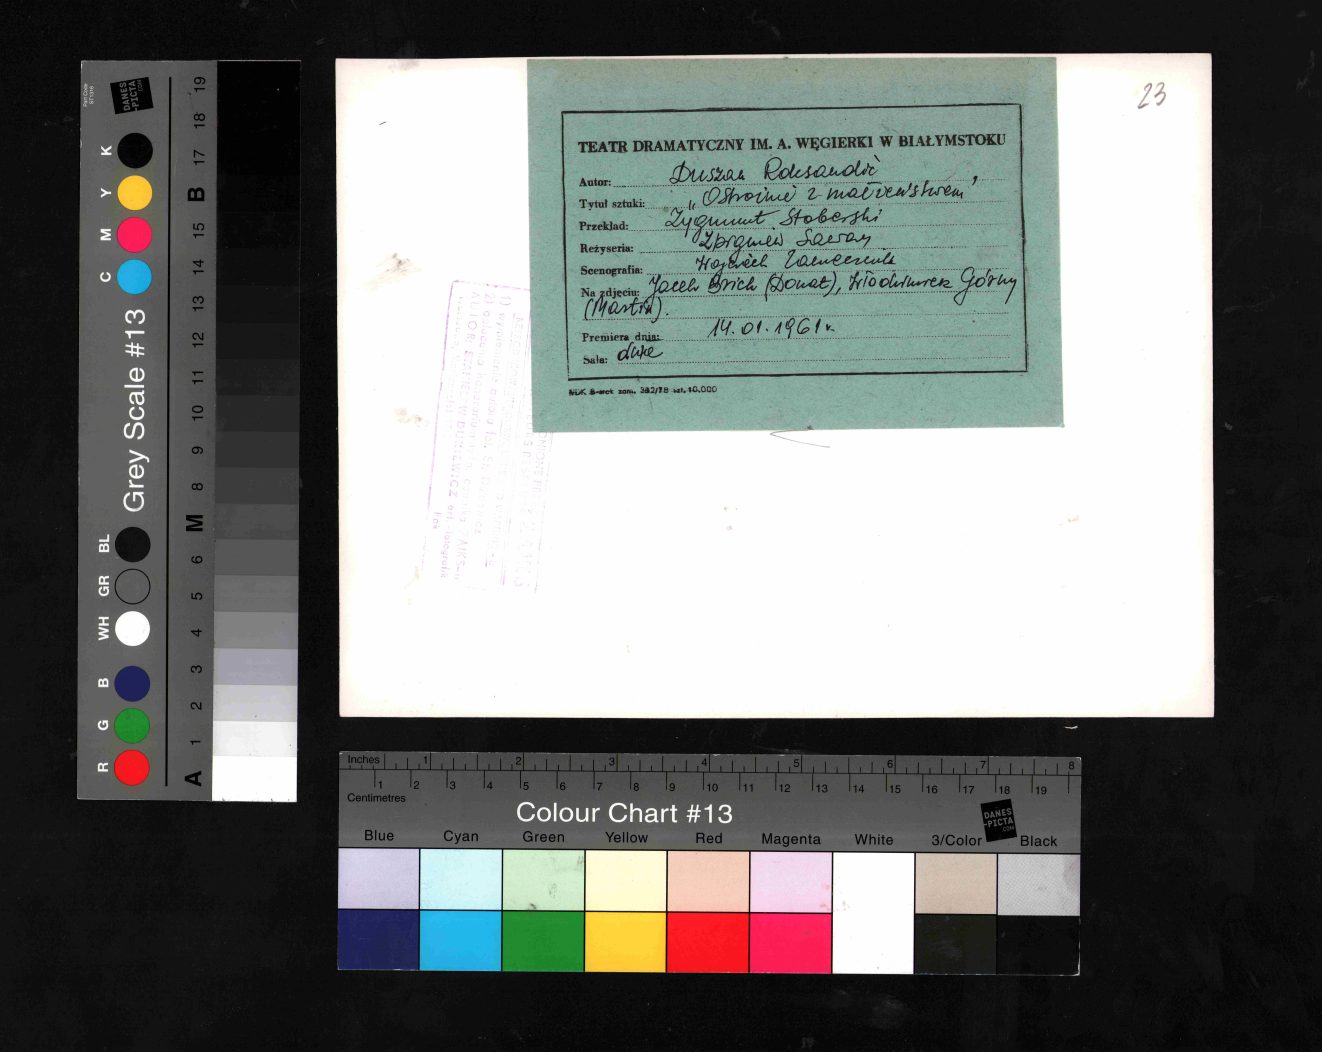 23
TEATR DRAMATYCZNY IM. A. WĘGIERKI W BIAŁYMSTOKU
Autor: Duszan Roksandić
Tytuł sztuki: „Ostrożnie z małżeństwem”
Przekład: Zygmunt Stoberski
Reżyseria: Zbigniew Sawan
Scenografia: Wojciech
Na zdjęciu: Jacek Brick (Donat), Włodzimierz Górny
(Martin).
Premiera dnia: 14.01.1961r.
Sala: duże
10.000
Part Code
ST1316
DANES
-PICTA
.COM
Grey Scale #13
K Y M C
BL GR WH B G R
A 1 2 3 4 5 6 M 8 9 10 11 12 13 14 15 B 17 18 19
Inches 1 2 3 4 5 6 7 8
1 2 3 4 5 6 7 8 9 10 11 12 13 14 15 16 17 18 19
Centimetres
Colour Chart #13
DANES
-PICTA
.COM
Blue Cyan Green Yellow Red Magenta White 3/Color Black